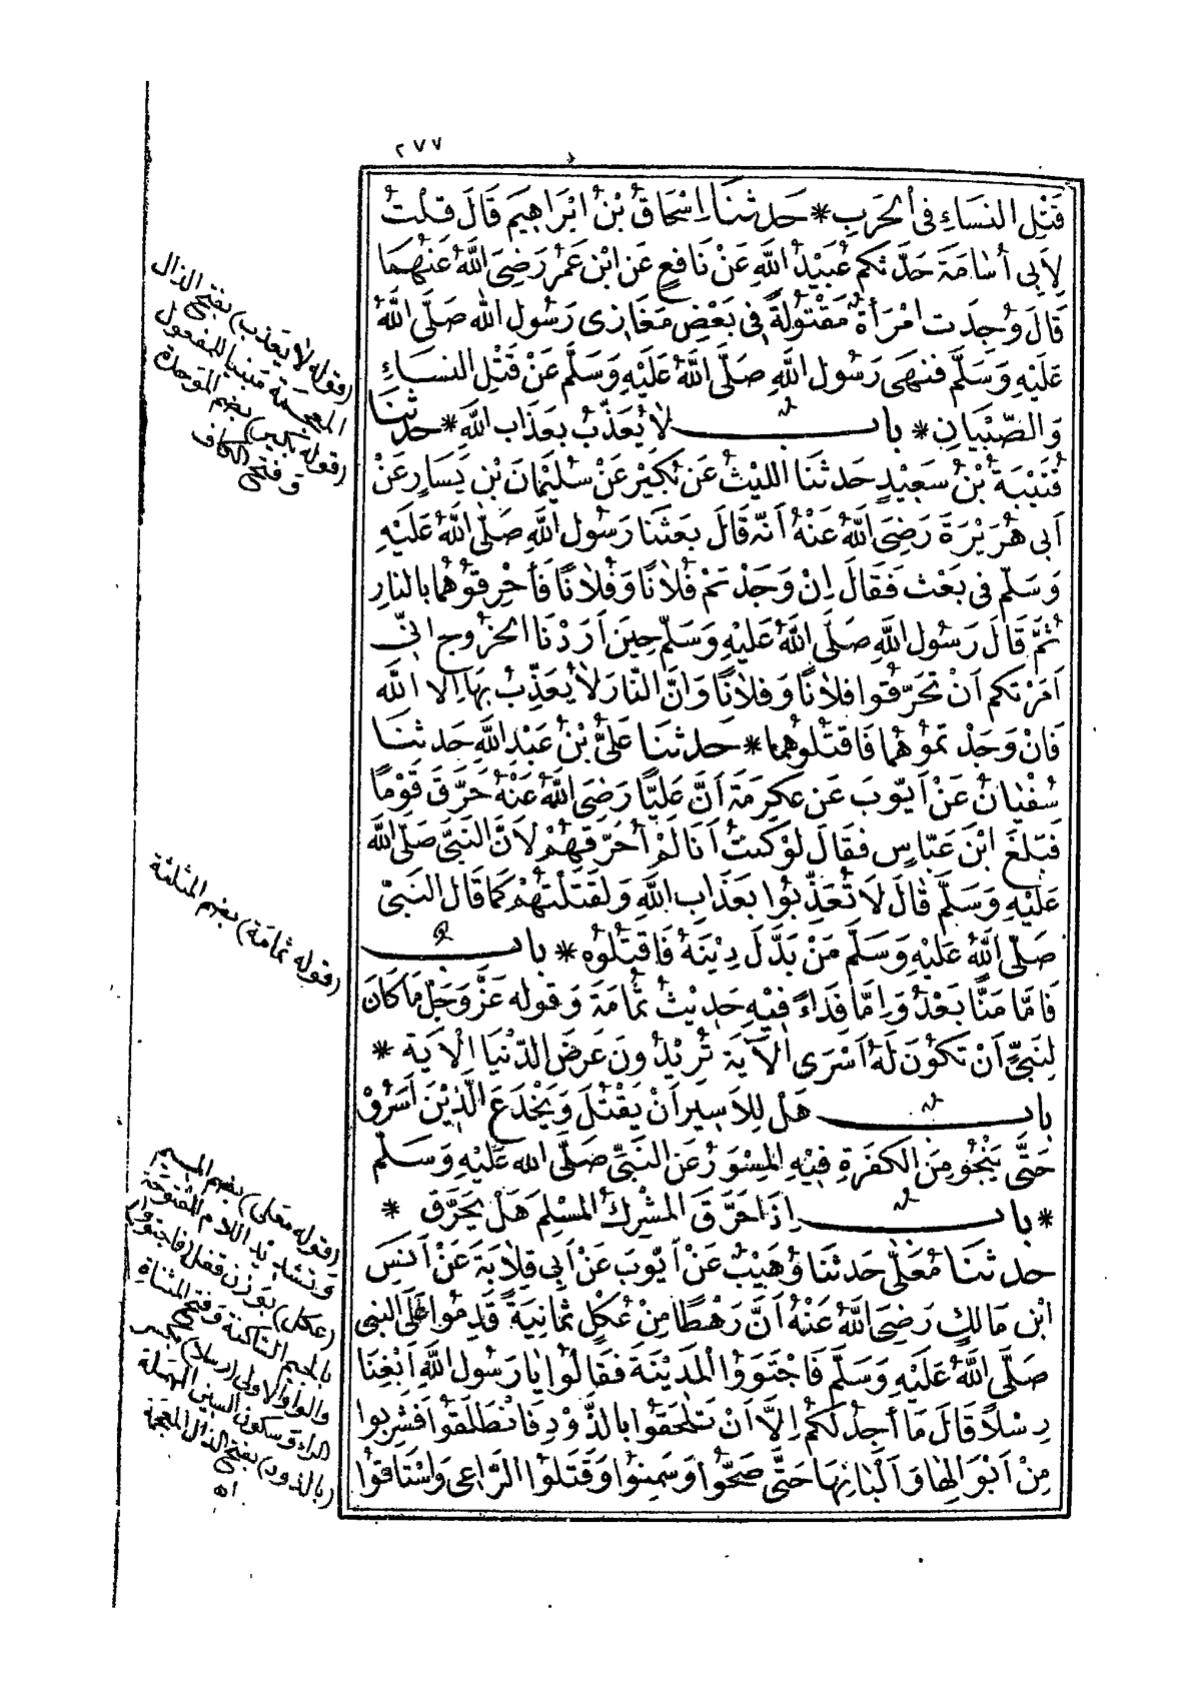 ٢٧٧
قَتْلِ النِّسَاءِ فِى الْحَرْبِ * حَدَّثَنَا إِسْحَاقُ بْنُ إِبْرَاهِيمَ قَالَ قُلْتُ
لِأَبِى أُسَامَةَ حَدَّثَكُمْ عُبَيْدُ اللَّهِ عَنْ نَافِعٍ عَنِ ابْنِ عُمَرَ رَضِىَ اللَّهُ عَنْهُمَا
قَالَ وُجِدَتِ امْرَأَةٌ مَقْتُولَةً فِى بَعْضِ مَغَازِى رَسُولِ اللَّهِ صَلَّى اللَّهُ
عَلَيْهِ وَسَلَّمَ فَنَهَى رَسُولُ اللَّهِ صَلَّى اللَّهُ عَلَيْهِ وَسَلَّمَ عَنْ قَتْلِ النِّسَاءِ
وَالصِّبْيَانِ * بَاب لَا يُعَذَّبُ بِعَذَابِ اللَّهِ * حَدَّثَنَا
قُتَيْبَةُ بْنُ سَعِيدٍ حَدَّثَنَا اللَّيْثُ عَنْ بُكَيْرٍ عَنْ سُلَيْمَانَ بْنِ يَسَارٍ عَنْ
أَبِى هُرَيْرَةَ رَضِىَ اللَّهُ عَنْهُ أَنَّهُ قَالَ بَعَثَنَا رَسُولُ اللَّهِ صَلَّى اللَّهُ عَلَيْهِ
وَسَلَّمَ فِى بَعْثٍ فَقَالَ إِنْ وَجَدْتُمْ فُلَانًا وَفُلَانًا فَأَحْرِقُوهُمَا بِالنَّارِ
ثُمَّ قَالَ رَسُولُ اللَّهِ صَلَّى اللَّهُ عَلَيْهِ وَسَلَّمَ حِينَ أَرَدْنَا الْخُرُوجَ إِنِّى
أَمَرْتُكُمْ أَنْ تُحَرِّقُوا فُلَانًا وَفُلَانًا وَإِنَّ النَّارَ لَا يُعَذِّبُ بِهَا إِلَّا اللَّهُ
فَإِنْ وَجَدْتُمُوهُمَا فَاقْتُلُوهُمَا * حَدَّثَنَا عَلِىُّ بْنُ عَبْدِ اللَّهِ حَدَّثَنَا
سُفْيَانُ عَنْ أَيُّوبَ عَنْ عِكْرِمَةَ أَنَّ عَلِيًّا رَضِىَ اللَّهُ عَنْهُ حَرَّقَ قَوْمًا
فَبَلَغَ ابْنَ عَبَّاسٍ فَقَالَ لَوْ كُنْتُ أَنَا لَمْ أُحَرِّقْهُمْ لِأَنَّ النَّبِىَّ صَلَّى اللَّهُ
عَلَيْهِ وَسَلَّمَ قَالَ لَا تُعَذِّبُوا بِعَذَابِ اللَّهِ وَلَقَتَلْتُهُمْ كَمَا قَالَ النَّبِىُّ
صَلَّى اللَّهُ عَلَيْهِ وَسَلَّمَ مَنْ بَدَّلَ دِينَهُ فَاقْتُلُوهُ * بَاب
فَإِمَّا مَنًّا بَعْدُ وَإِمَّا فِدَاءً فِيهِ حَدِيثُ ثُمَامَةَ وَقَوْلِهِ عَزَّ وَجَلَّ مَا كَانَ
لِنَبِىٍّ أَنْ تَكُونَ لَهُ أَسْرَى الْآيَةَ تُرِيدُونَ عَرَضَ الدُّنْيَا الْآيَةَ *
بَاب هَلْ لِلْأَسِيرِ أَنْ يَقْتُلَ وَيَخْدَعَ الَّذِينَ أَسَرُوهُ
حَتَّى يَنْجُوَ مِنَ الْكَفَرَةِ فِيهِ الْمِسْوَرُ عَنِ النَّبِىِّ صَلَّى اللَّهُ عَلَيْهِ وَسَلَّمَ
* بَاب إِذَا حَرَّقَ الْمُشْرِكُ الْمُسْلِمَ هَلْ يُحَرَّقُ *
حَدَّثَنَا مُعَلًّى حَدَّثَنَا وُهَيْبٌ عَنْ أَيُّوبَ عَنْ أَبِى قِلَابَةَ عَنْ أَنَسِ
ابْنِ مَالِكٍ رَضِىَ اللَّهُ عَنْهُ أَنَّ رَهْطًا مِنْ عُكْلٍ ثَمَانِيَةً قَدِمُوا عَلَى النَّبِىِّ
صَلَّى اللَّهُ عَلَيْهِ وَسَلَّمَ فَاجْتَوَوُا الْمَدِينَةَ فَقَالُوا يَا رَسُولَ اللَّهِ أَبْغِنَا
رِسْلًا قَالَ مَا أَجِدُ لَكُمْ إِلَّا أَنْ تَلْحَقُوا بِالذَّوْدِ فَانْطَلَقُوا فَشَرِبُوا
مِنْ أَبْوَالِهَا وَأَلْبَانِهَا حَتَّى صَحُّوا وَسَمِنُوا وَقَتَلُوا الرَّاعِىَ وَاسْتَاقُوا
(قوله لا يعذب) بفتح الذال
المعجمة مبنيا للمفعول
(قوله بكير) بضم الموحدة
وفتح الكاف
(قوله ثمامة) بضم المثلثة
(قوله معلى) بضم الميم
وتشديد اللام المفتوحة
(عكل) بوزن قفل (فاجتووا)
بالجيم الساكنة وفتح المثناة
والواو الاولى (رسلا) بكسر
الراء وسكون السين المهملة
(بالذود) بفتح الذال المعجمة
اه